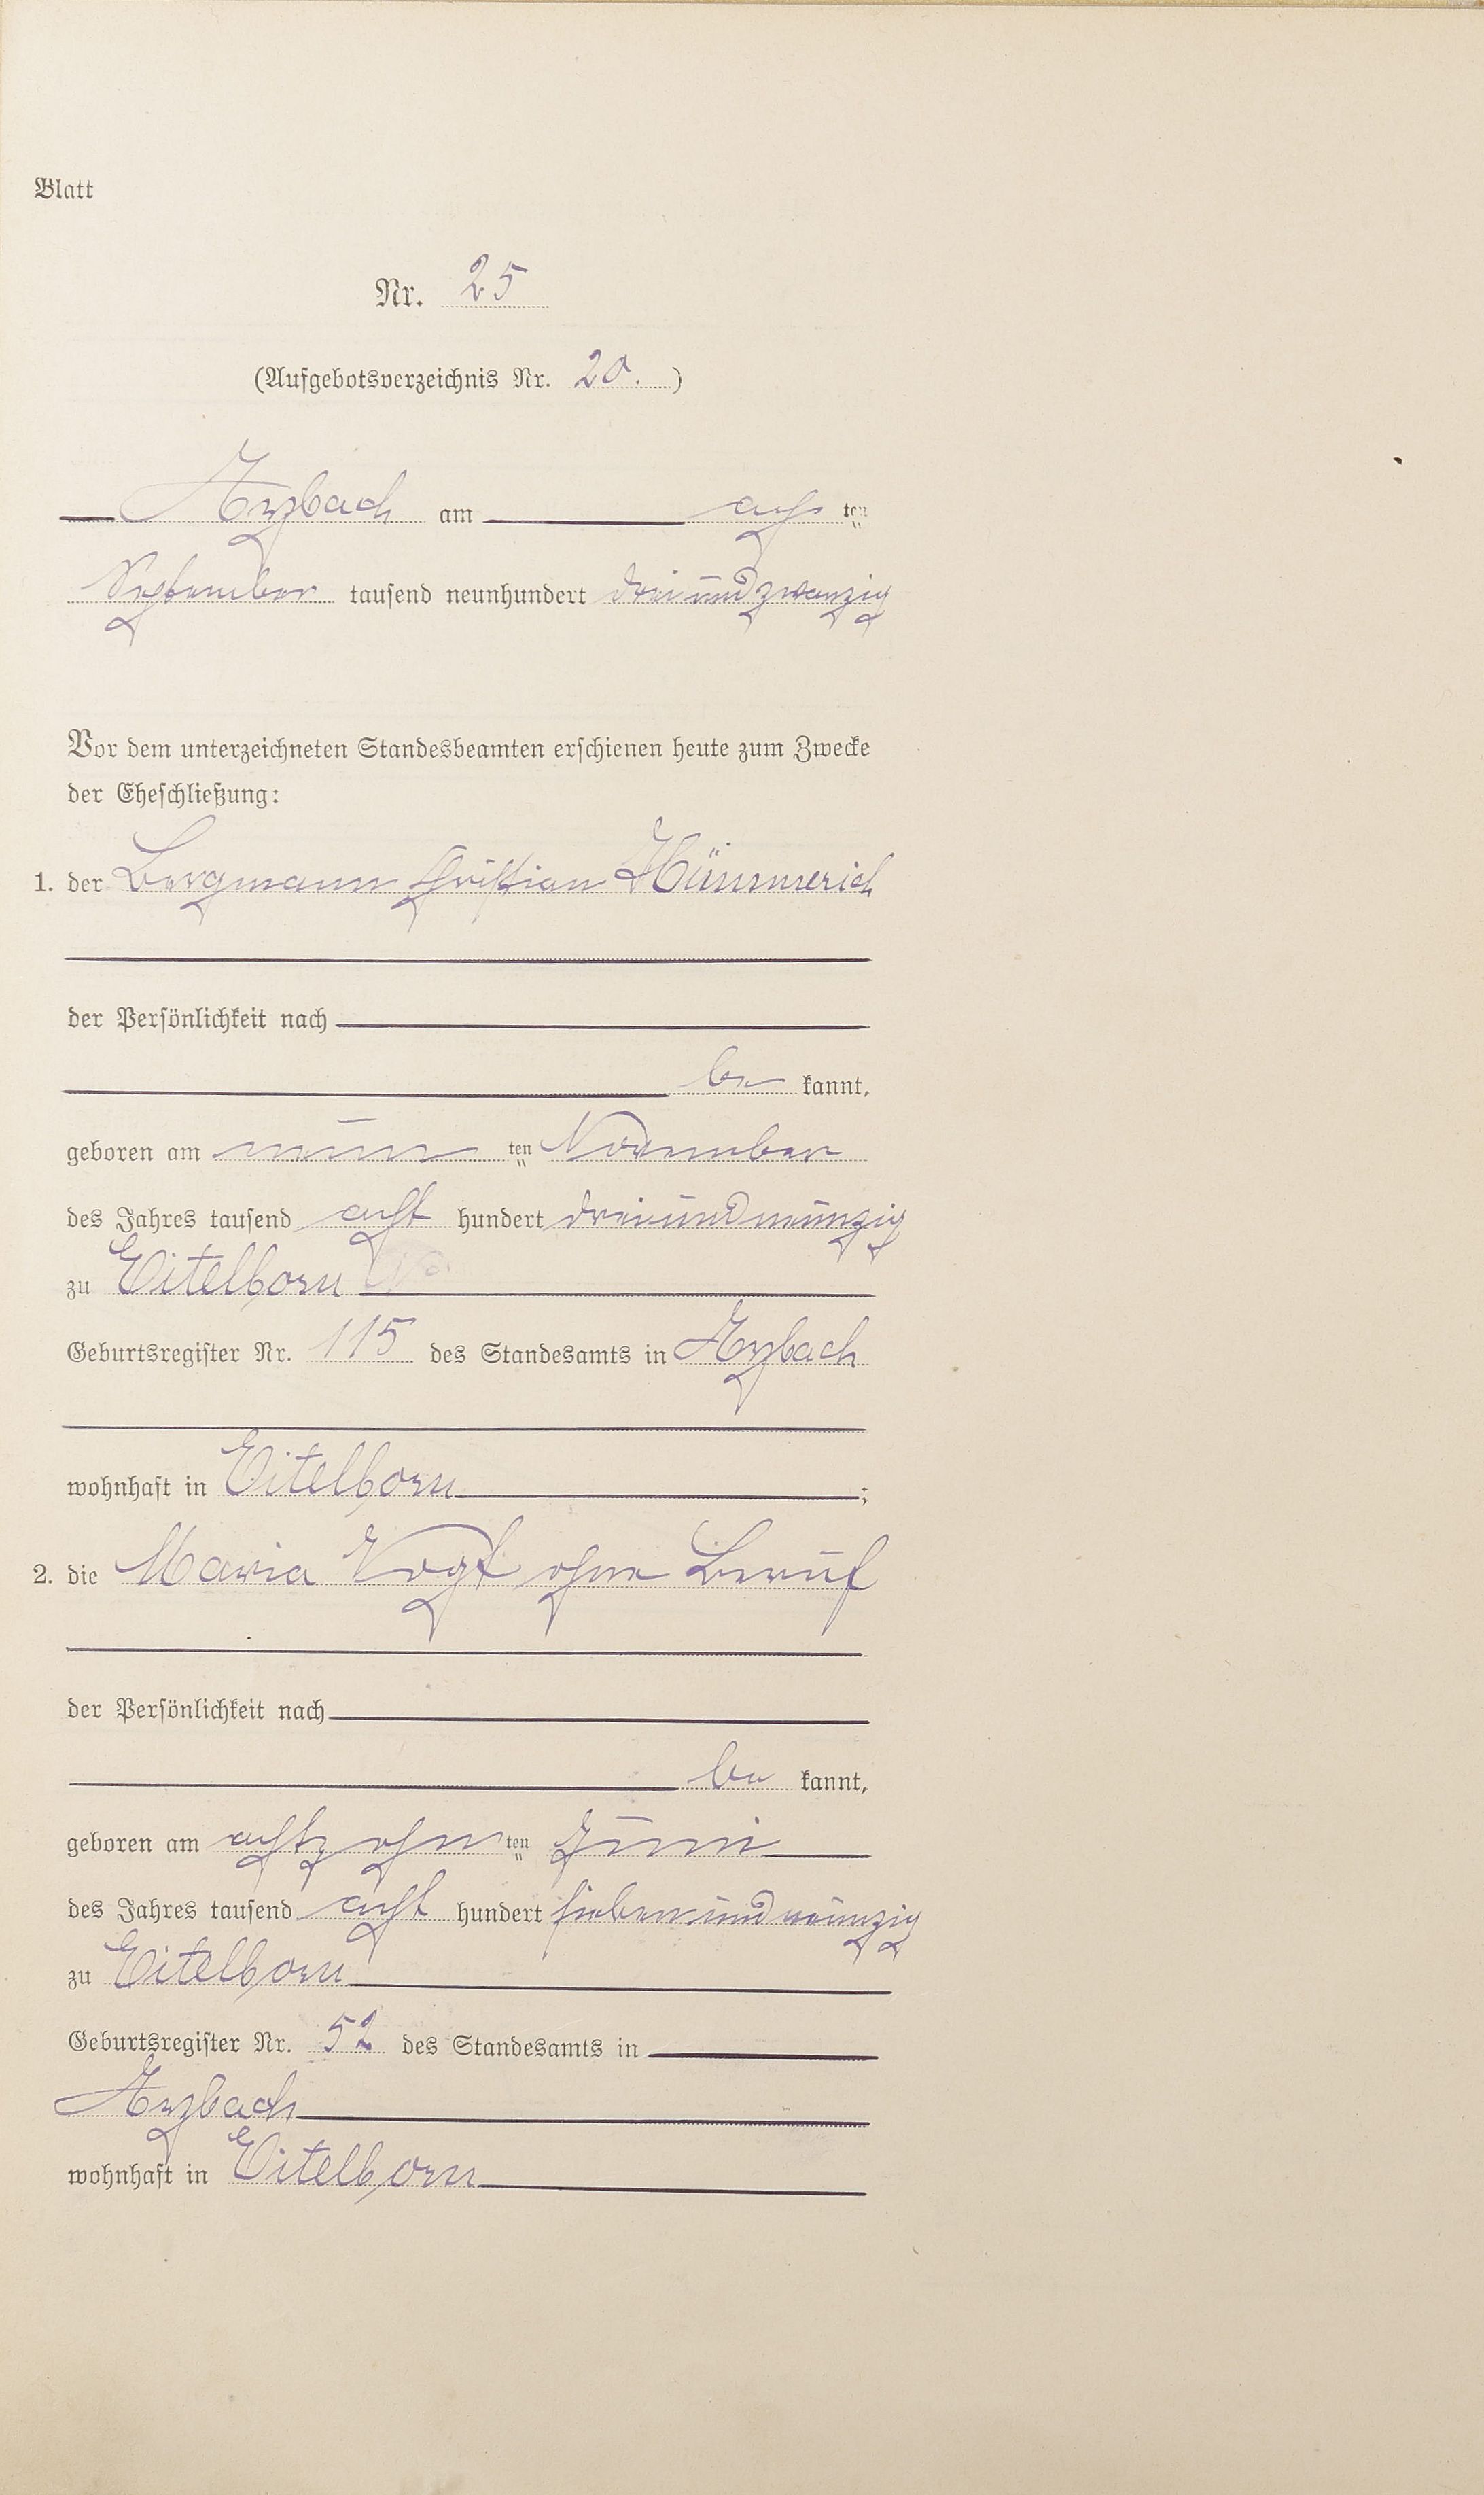 Blatt
Nr. 25
(Aufgebotsverzeichnis Nr. 20.)
Arzbach am ach ten
September tausend neunhundert dreiundzwanzig
Vor dem unterzeichneten Standesbeamten erschienen heute zum Zwecke
der Eheschließung:
1. der Bergmann Christian Hümmerich
der Persönlichkeit nach
be kannt,
geboren am neun ten November
des Jahres tausend acht hundert dreiundneunzig
zu Eitelborn
Geburtsregister Nr. 115 des Standesamts in Arzbach
wohnhaft in Eitelborn ;
2. die Maria Vogt ohne Beruf
der Persönlichkeit nach
be kannt,
geboren am achtzehn ten Juni
des Jahres tausend acht hundert siebenundneunzig
zu Eitelborn
Geburtsregister Nr. 52 des Standesamts in
Arzbach
wohnhaft in Eitelborn